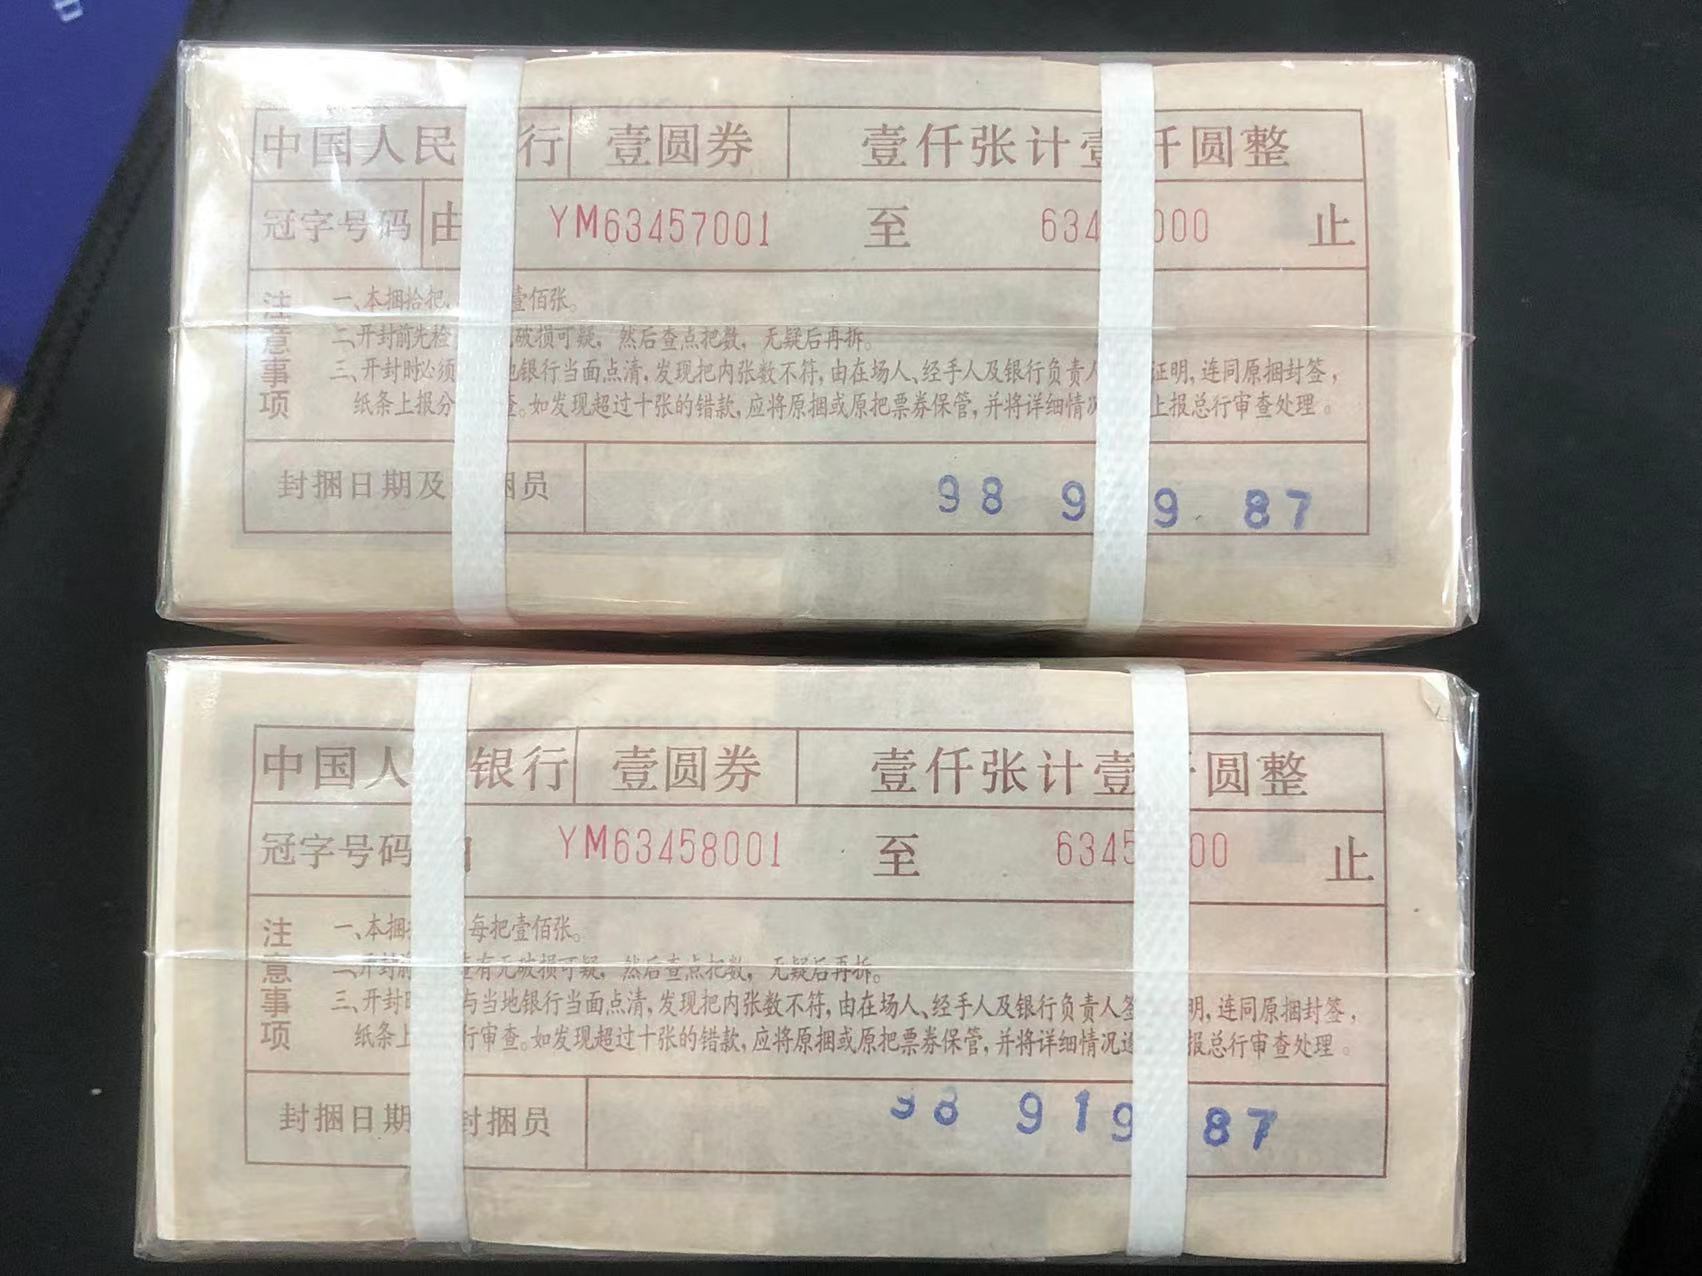 中国人民 行 壹圆券 壹仟张计壹 仟圆整
冠字号码 由 YM63457001 至 634 000 止
注意事项
一、本捆拾把、 壹佰张。
二、开封前先检 破损可疑，然后查点把数，无疑后再拆。
三、开封时必须 地银行当面点清，发现把内张数不符，由在场人、经手人及银行负责人 证明，连同原捆封签，
纸条上报分 查。如发现超过十张的错款，应将原捆或原把票券保管，并将详细情况 上报总行审查处理。
封捆日期及 捆员 98 9 9 87
中国人 银行 壹圆券 壹仟张计壹 圆整
冠字号码 YM63458001 至 6345 00 止
注意事项
一、本捆 每把壹佰张。
二、开封前 查有无破损可疑，然后查点把数，无疑后再拆。
三、开封时 与当地银行当面点清，发现把内张数不符，由在场人、经手人及银行负责人签 明，连同原捆封签，
纸条上 行审查。如发现超过十张的错款，应将原捆或原把票券保管，并将详细情况逐 报总行审查处理。
封捆日期 封捆员 98 919 87